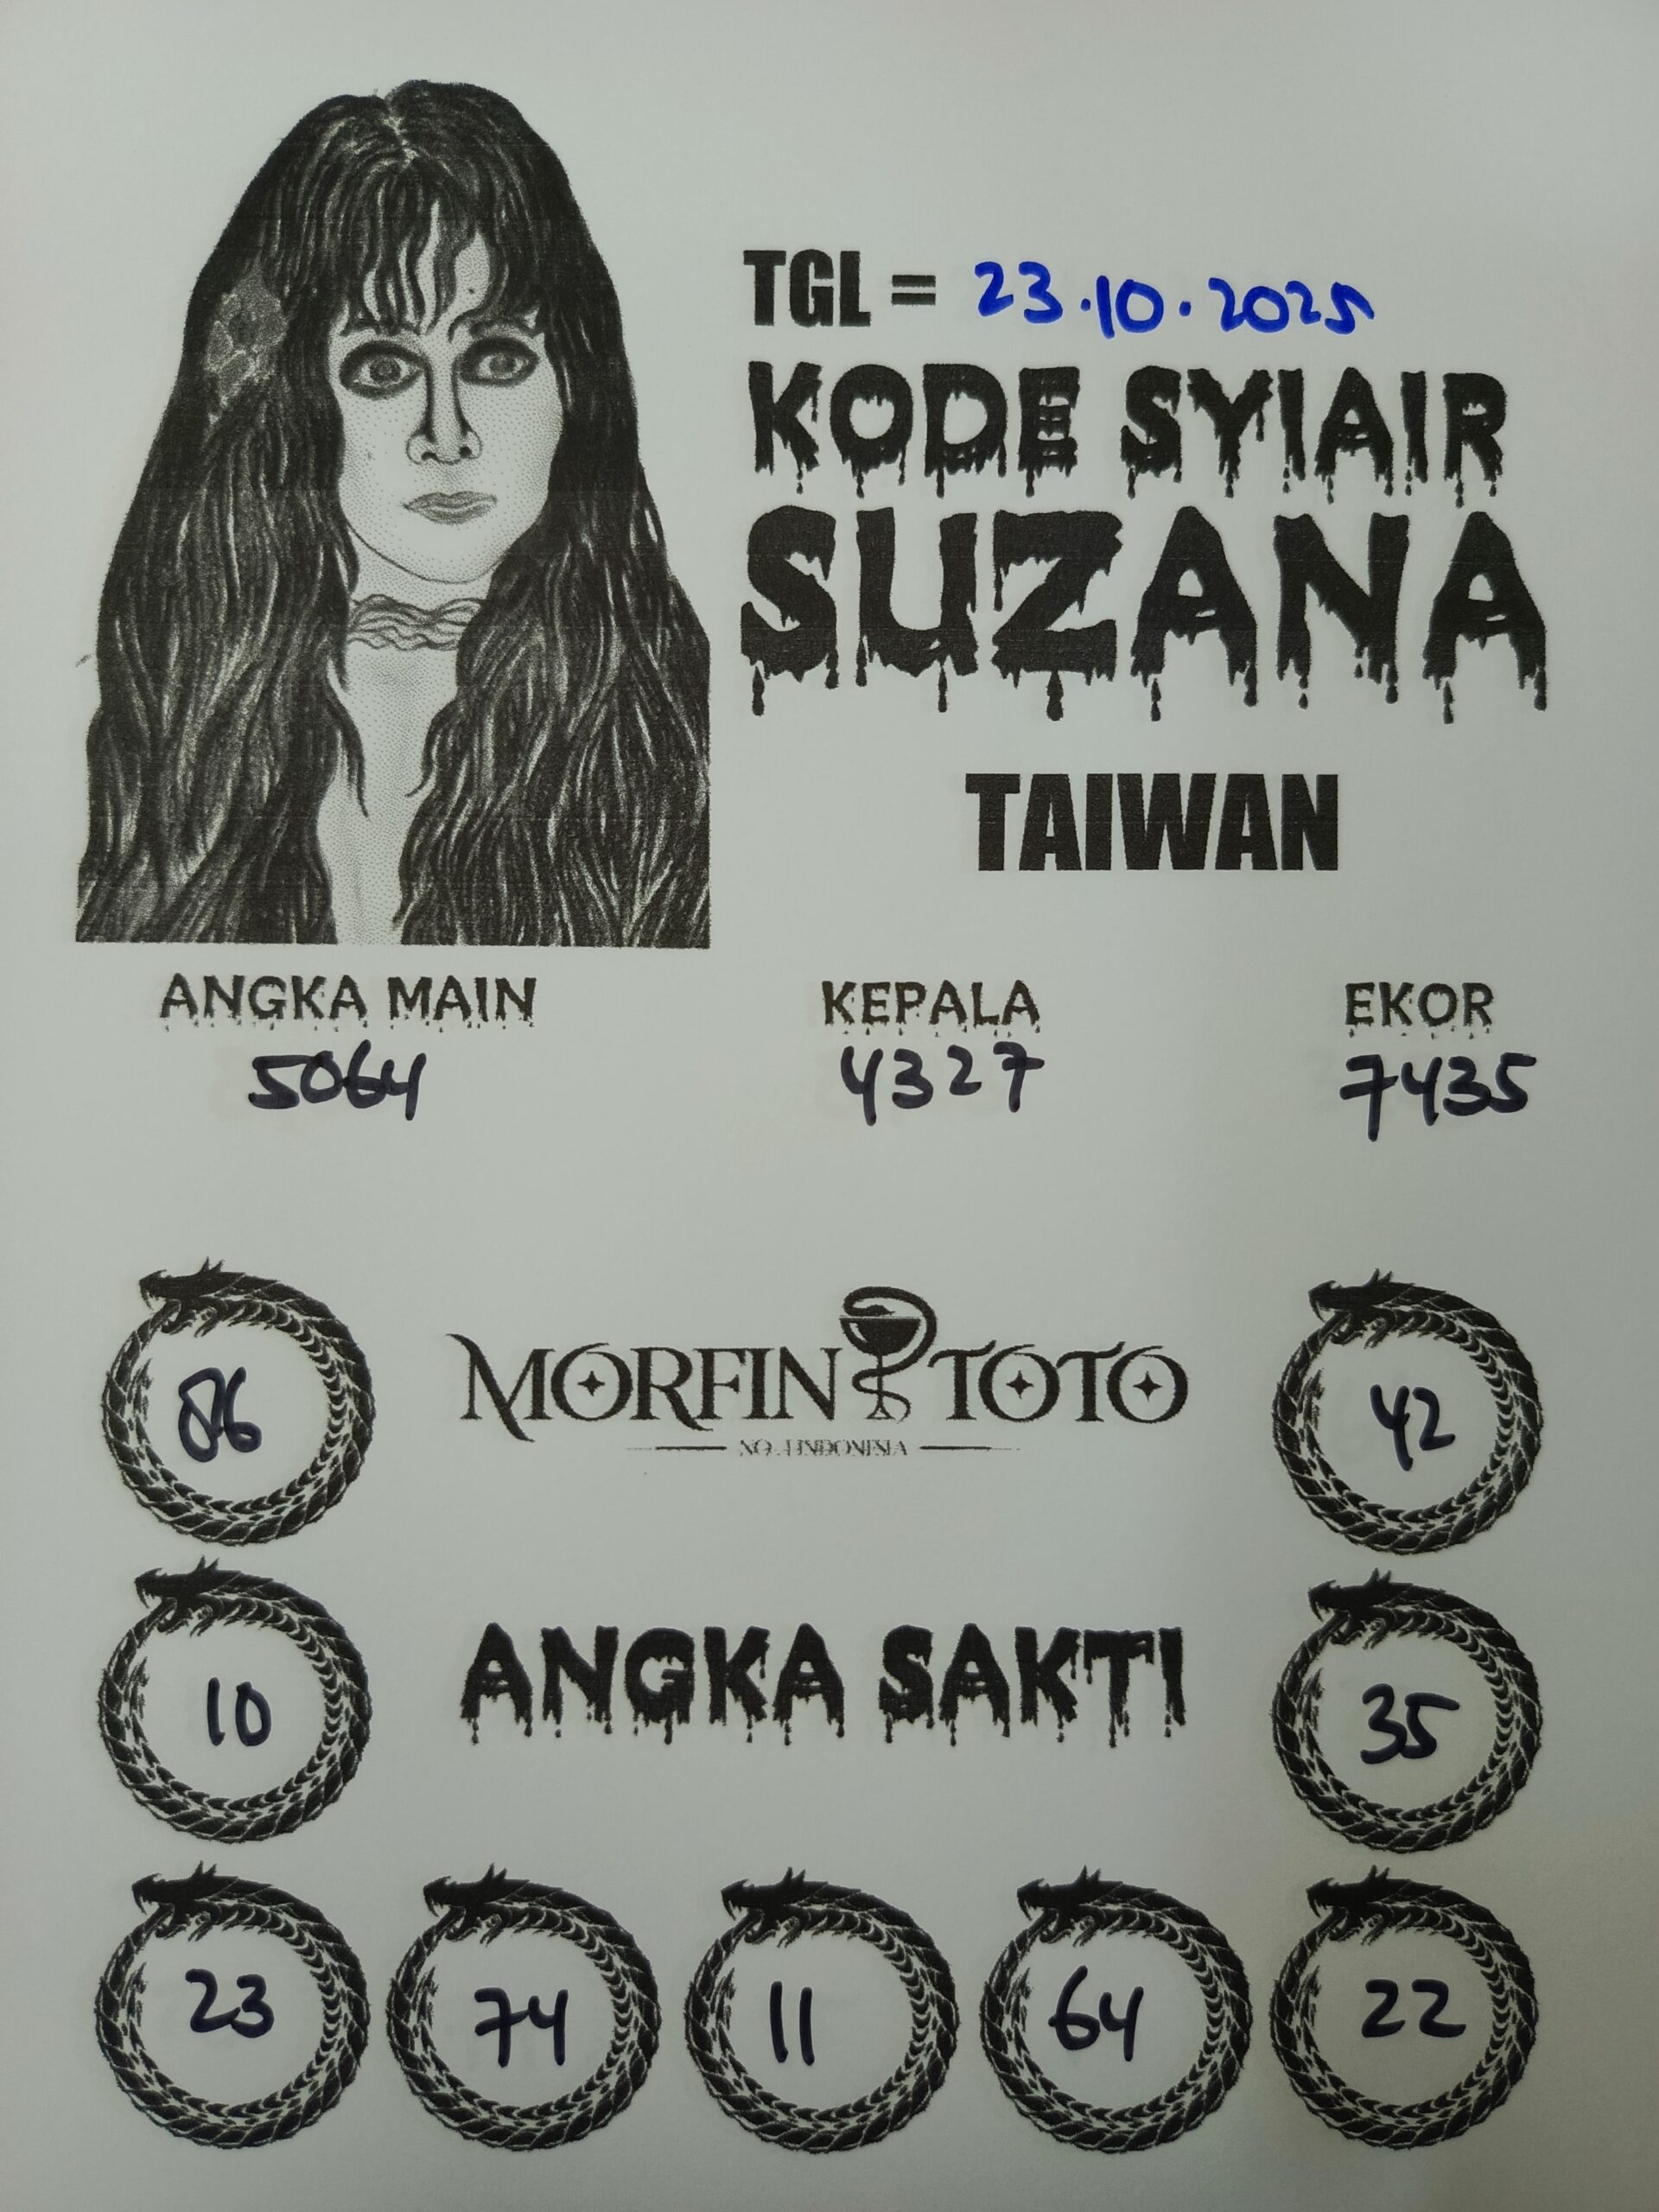 TGL = 23.10.2025
KODE SYIAIR
SUZANA
TAIWAN
ANGKA MAIN KEPALA EKOR
5064 4327 7435
MORFIN TOTO
NO.1 INDONESIA
86 42
ANGKA SAKTI
10 35
23 74 11 64 22